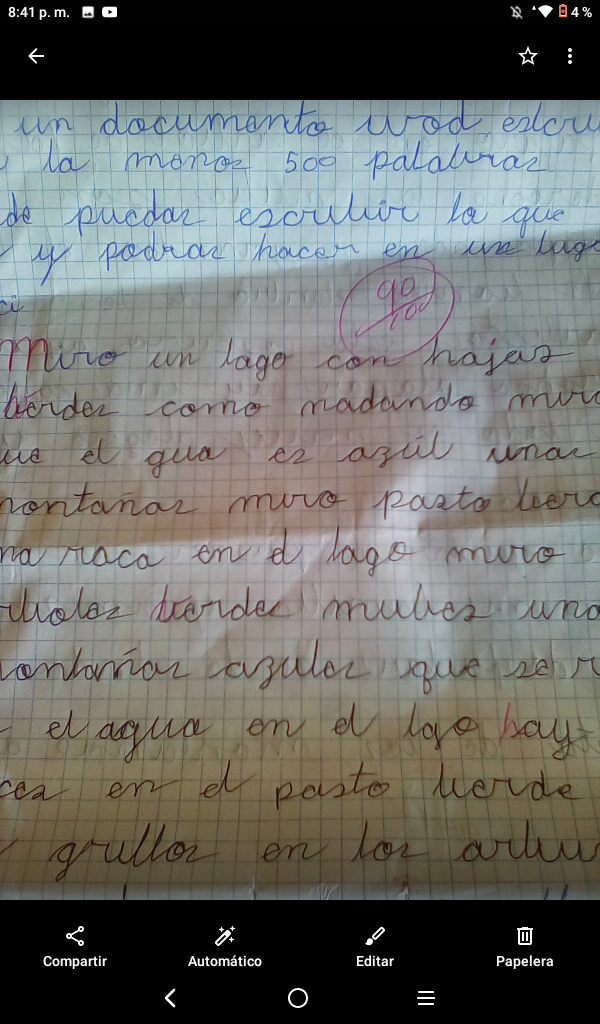 8:41 p. m. 4 %
un documento wod escru
la menos 500 palabras
de puedas escribir la que
y podras hacer en un luga
90/100
Miro un lago con hojas
berdes como nadando miro
ue el gua es azúl unas
montañas miro pasto berd
na roca en el lago miro
rboles berdes nubes una
ontañas azules que se r
el agua en el lgo hay
ces en el pasto berde
grillos en los arbu
Compartir Automático Editar Papelera